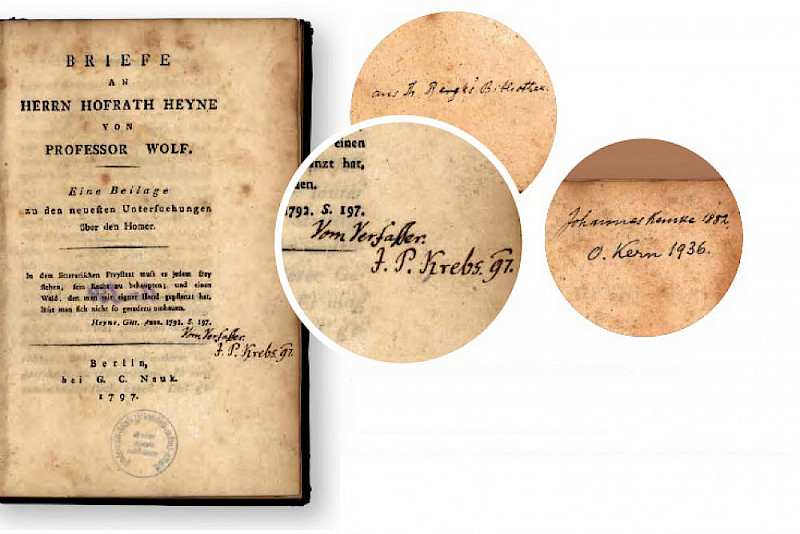 BRIEFE
AN
HERRN HOFRATH HEYNE
VON
PROFESSOR WOLF.
Eine Beilage
zu den neueſten Unterſuchungen
über den Homer.
In dem litterariſchen Freyſtaat muſs es jedem frey
ſtehen, ſein Recht zu behaupten; und einen
Wald, den man mit eigner Hand gepflanzt hat,
läſst man ſich nicht ſo geradezu umhauen.
Heyne, Gött. Anz. 1792. S. 197.
Vom Verfaſſer.
J. P. Krebs. 97.
Berlin,
bei G. C. Nauk.
1797.
aus Th. Bibliothek.
einen
nzt hat,
en.
1792. S. 197.
Vom Verfaſſer.
J. P. Krebs. 97.
Johannes 1882
O. Kern 1936.